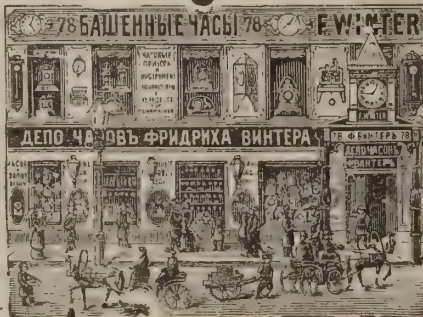 78 БАШЕННЫЕ ЧАСЫ 78 F. WINTER
ЧАСОВЫЕ
ПРИБОРЫ
И
ИНСТРУМЕНТ
ДЕПО ЧАСОВЪ ФРИДРИХА ВИНТЕРА
78 Ф. ВИНТЕРЪ 78
ДЕПО ЧАСОВЪ
ВИНТЕРЪ